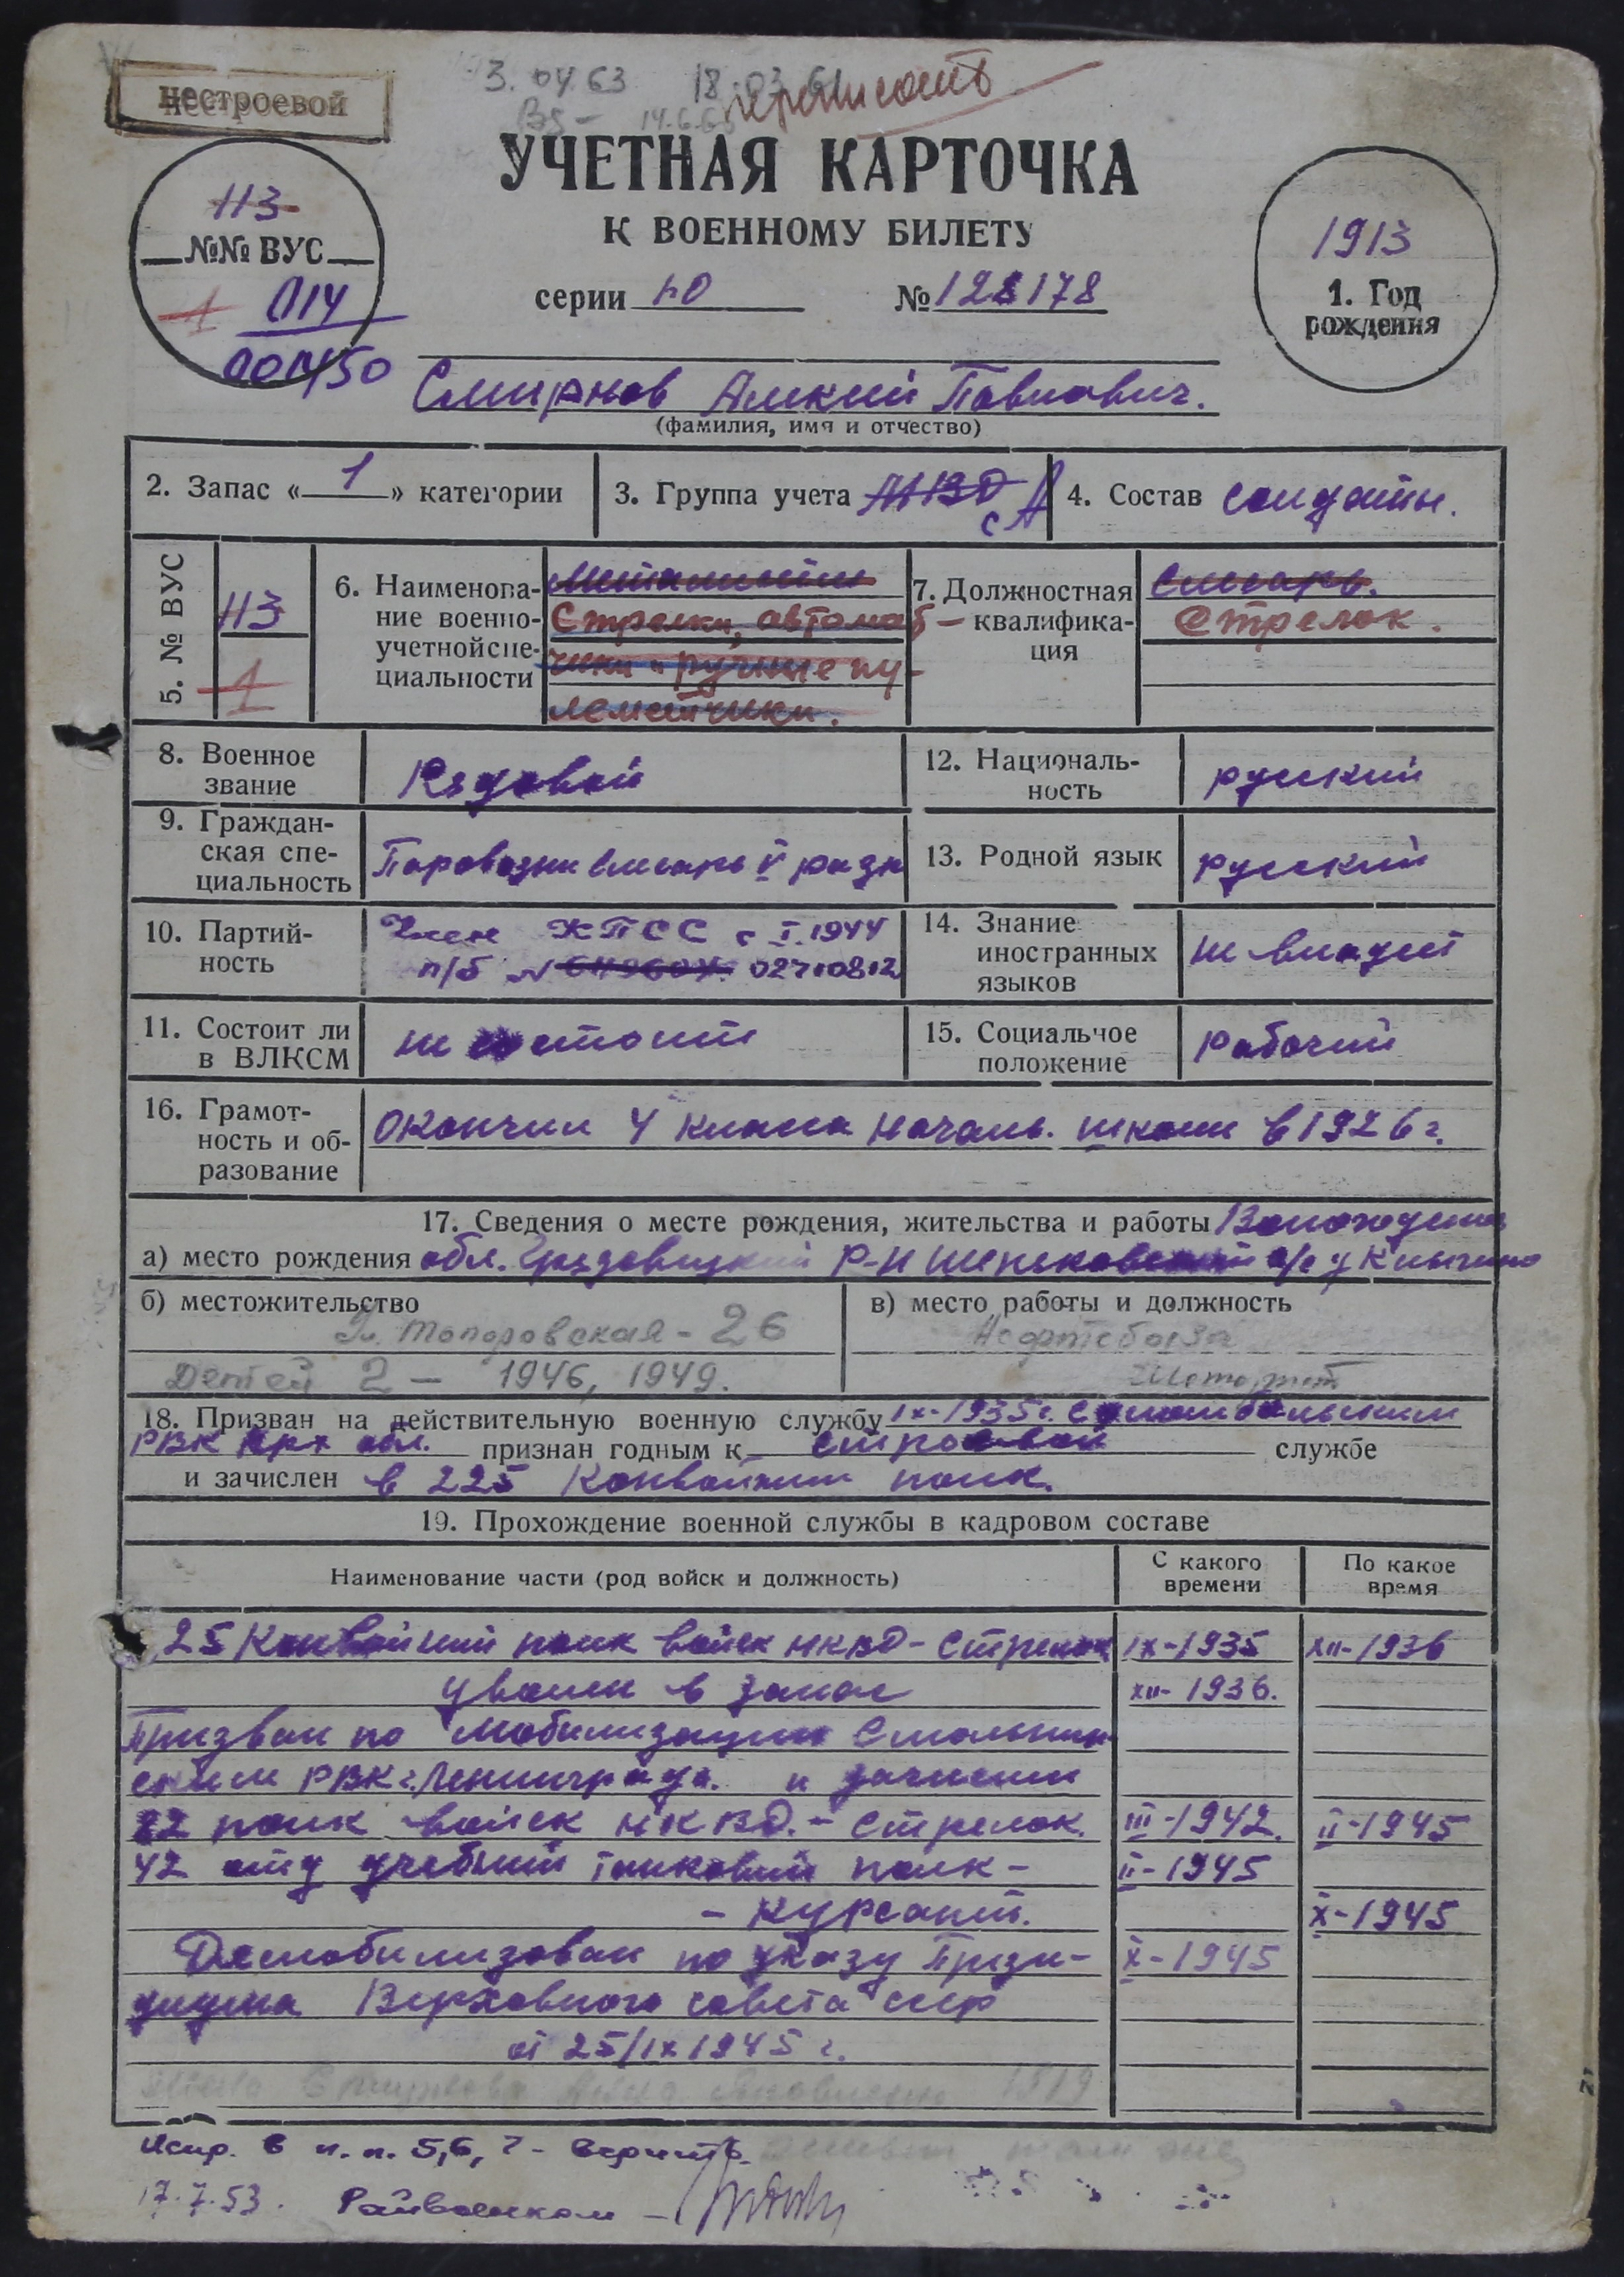 нестроевой
3.04.63 18.03.61 переписать
14.6.6
УЧЕТНАЯ КАРТОЧКА
К ВОЕННОМУ БИЛЕТУ
113
№№ ВУС
1 014
001450
серии НО № 128178
1913
1. Год
рождения
Смирнов Алексей Павлович.
(фамилия, имя и отчество)
2. Запас «1» категории
3. Группа учета НКВД СА
4. Состав солдаты.
5. № ВУС
113
1
6. Наименова-
ние военно-
учетной спе-
циальности
Стрелки, автомат-
чики и ручные пу-
леметчики.
7. Должностная
квалифика-
ция
Слесарь.
Стрелок.
8. Военное
звание
Рядовой
12. Националь-
ность
русский
9. Граждан-
ская спе-
циальность
Паровозный слесарь V разр
13. Родной язык
русский
10. Партий-
ность
Член КПСС с I.1944
п/б № 02710812
14. Знание
иностранных
языков
не владеет
11. Состоит ли
в ВЛКСМ
не состоит
15. Социальное
положение
рабочий
16. Грамот-
ность и об-
разование
окончил 4 класса началь. школы в 1926 г.
17. Сведения о месте рождения, жительства и работы Вологодская
а) место рождения обл. Грязовецкий р-н с/с д
б) местожительство
Ул. Топоровская - 26
Детей 2 - 1946, 1949.
в) место работы и должность
Нефтебаза
18. Призван на действительную военную службу IX-1935 г. Соломбальским
РВК Арх обл. признан годным к строевой службе
и зачислен в 225 конвойный полк.
19. Прохождение военной службы в кадровом составе
Наименование части (род войск и должность)
С какого
времени
По какое
время
25 Конвойный полк войск НКВД - стрелок IX-1935 XII-1936
уволен в запас XII-1936.
Призван по мобилизации Смольнин-
ским РВК г. Ленинграда. и зачислен
22 полк войск НКВД. - стрелок. III-1942. II-1945
42 отд учебный танковый полк - II-1945
- курсант. X-1945
Демобилизован по указу Прези- X-1945
диума Верховного совета ссср
от 25/IX 1945 г.
1919
Испр. в п.п. 5, 6, 7 - верить.
17.7.53. Райвоенком -